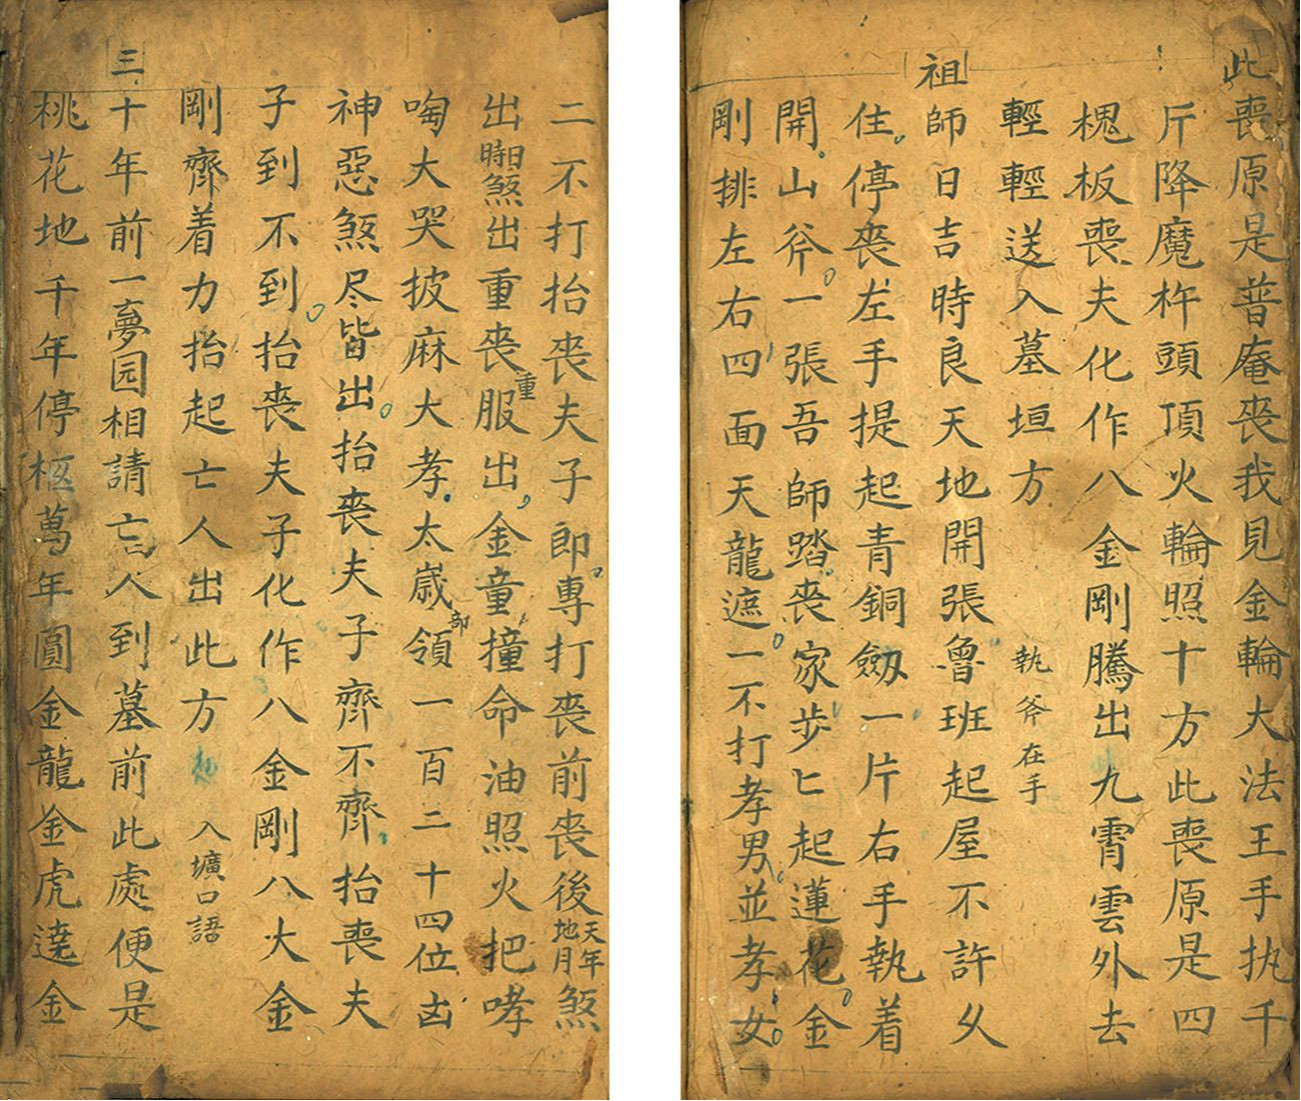 此喪原是普庵喪我見金輪大法王手执千
斤降魔杵頭頂火輪照十方此喪原是四
槐板喪夫化作八金剛騰出九霄雲外去
輕輕送入墓垣方 執斧在手
祖師日吉時良天地開張魯班起屋不許乆
住停喪左手提起青銅劔一片右手執着
開山斧一張吾師踏喪家步匕起蓮花金
剛排左右四面天龍遮一不打孝男並孝女
二不打抬喪夫子郎專打喪前喪後天年地月煞
出日時煞出重喪重服出金童撞命油照火把哮
啕大哭披麻大孝太歲部領一百二十四位凶
神惡煞尽皆出抬喪夫子齊不齊抬喪夫
子到不到抬喪夫子化作八金剛八大金
剛齊着力抬起亡人出此方 入壙口語
三十年前一夢园相請亡人到墓前此處便是
桃花地千年停柩萬年圓金龍金虎遶金